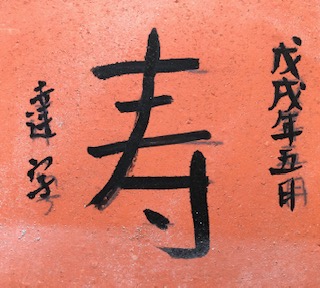 戊戌年五月
寿
幸達字